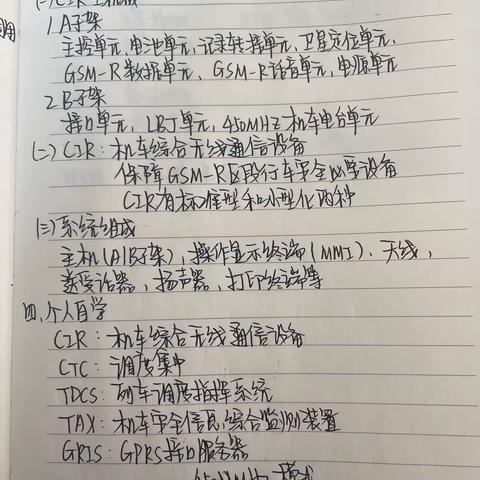 (一)CIR主机组成
1.A子架
主控单元,电池单元,记录转接单元,卫星定位单元,
GSM-R数据单元、GSM-R话音单元,电源单元
2.B子架
接口单元,LBJ单元,450MHz机车电台单元
(二)CIR:机车综合无线通信设备
保障GSM-R区段行车安全必备设备
CIR有标准型和小型化两种
(三)系统组成
主机(A|B子架),操作显示终端(MMI)、天线,
送受话器,扬声器,打印终端等
四.个人自学
CIR:机车综合无线通信设备
CTC:调度集中
TDCS:列车调度指挥系统
TAX:机车安全信息综合监测装置
GRIS:GPRS接口服务器